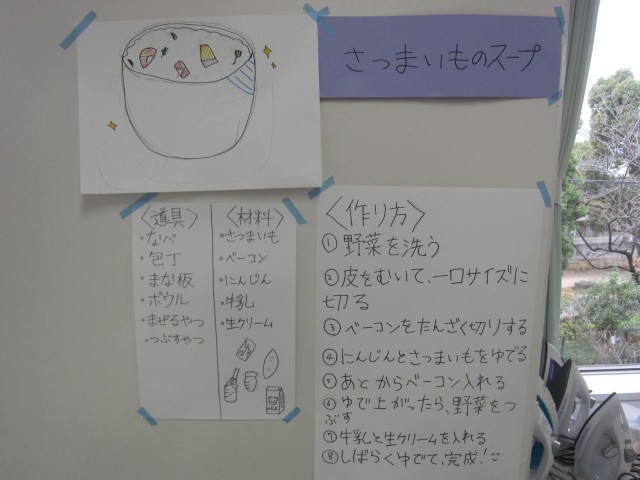 さつまいものスープ
〈道具〉
・なべ
・包丁
・まな板
・ボウル
・まぜるやつ
・つぶすやつ
〈材料〉
・さつまいも
・ベーコン
・にんじん
・牛乳
・生クリーム
〈作り方〉
①野菜を洗う
②皮をむいて、一口サイズに
切る
③ベーコンをたんざく切りする
④にんじんとさつまいもをゆでる
⑤あとからベーコン入れる
⑥ゆで上がったら、野菜をつ
ぶす
⑦牛乳と生クリームを入れる
⑧しばらくゆでて、完成!